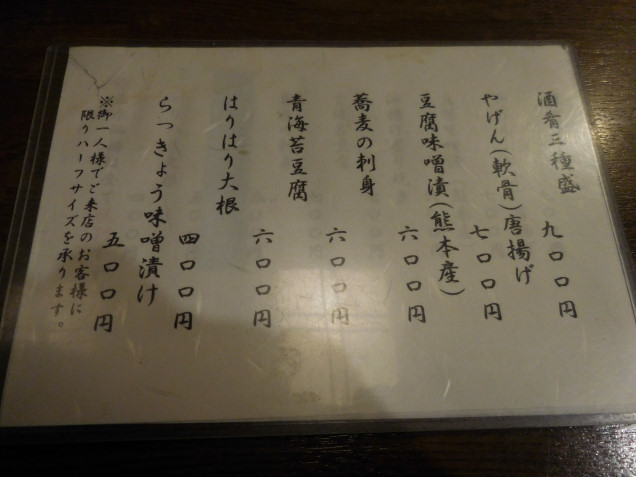 酒肴三種盛
九〇〇円
やげん(軟骨)唐揚げ
七〇〇円
豆腐味噌漬(熊本産)
六〇〇円
蕎麦の刺身
六〇〇円
青海苔豆腐
六〇〇円
はりはり大根
四〇〇円
らっきょう味噌漬け
五〇〇円
※御一人様でご来店のお客様に
限りハーフサイズを承ります。